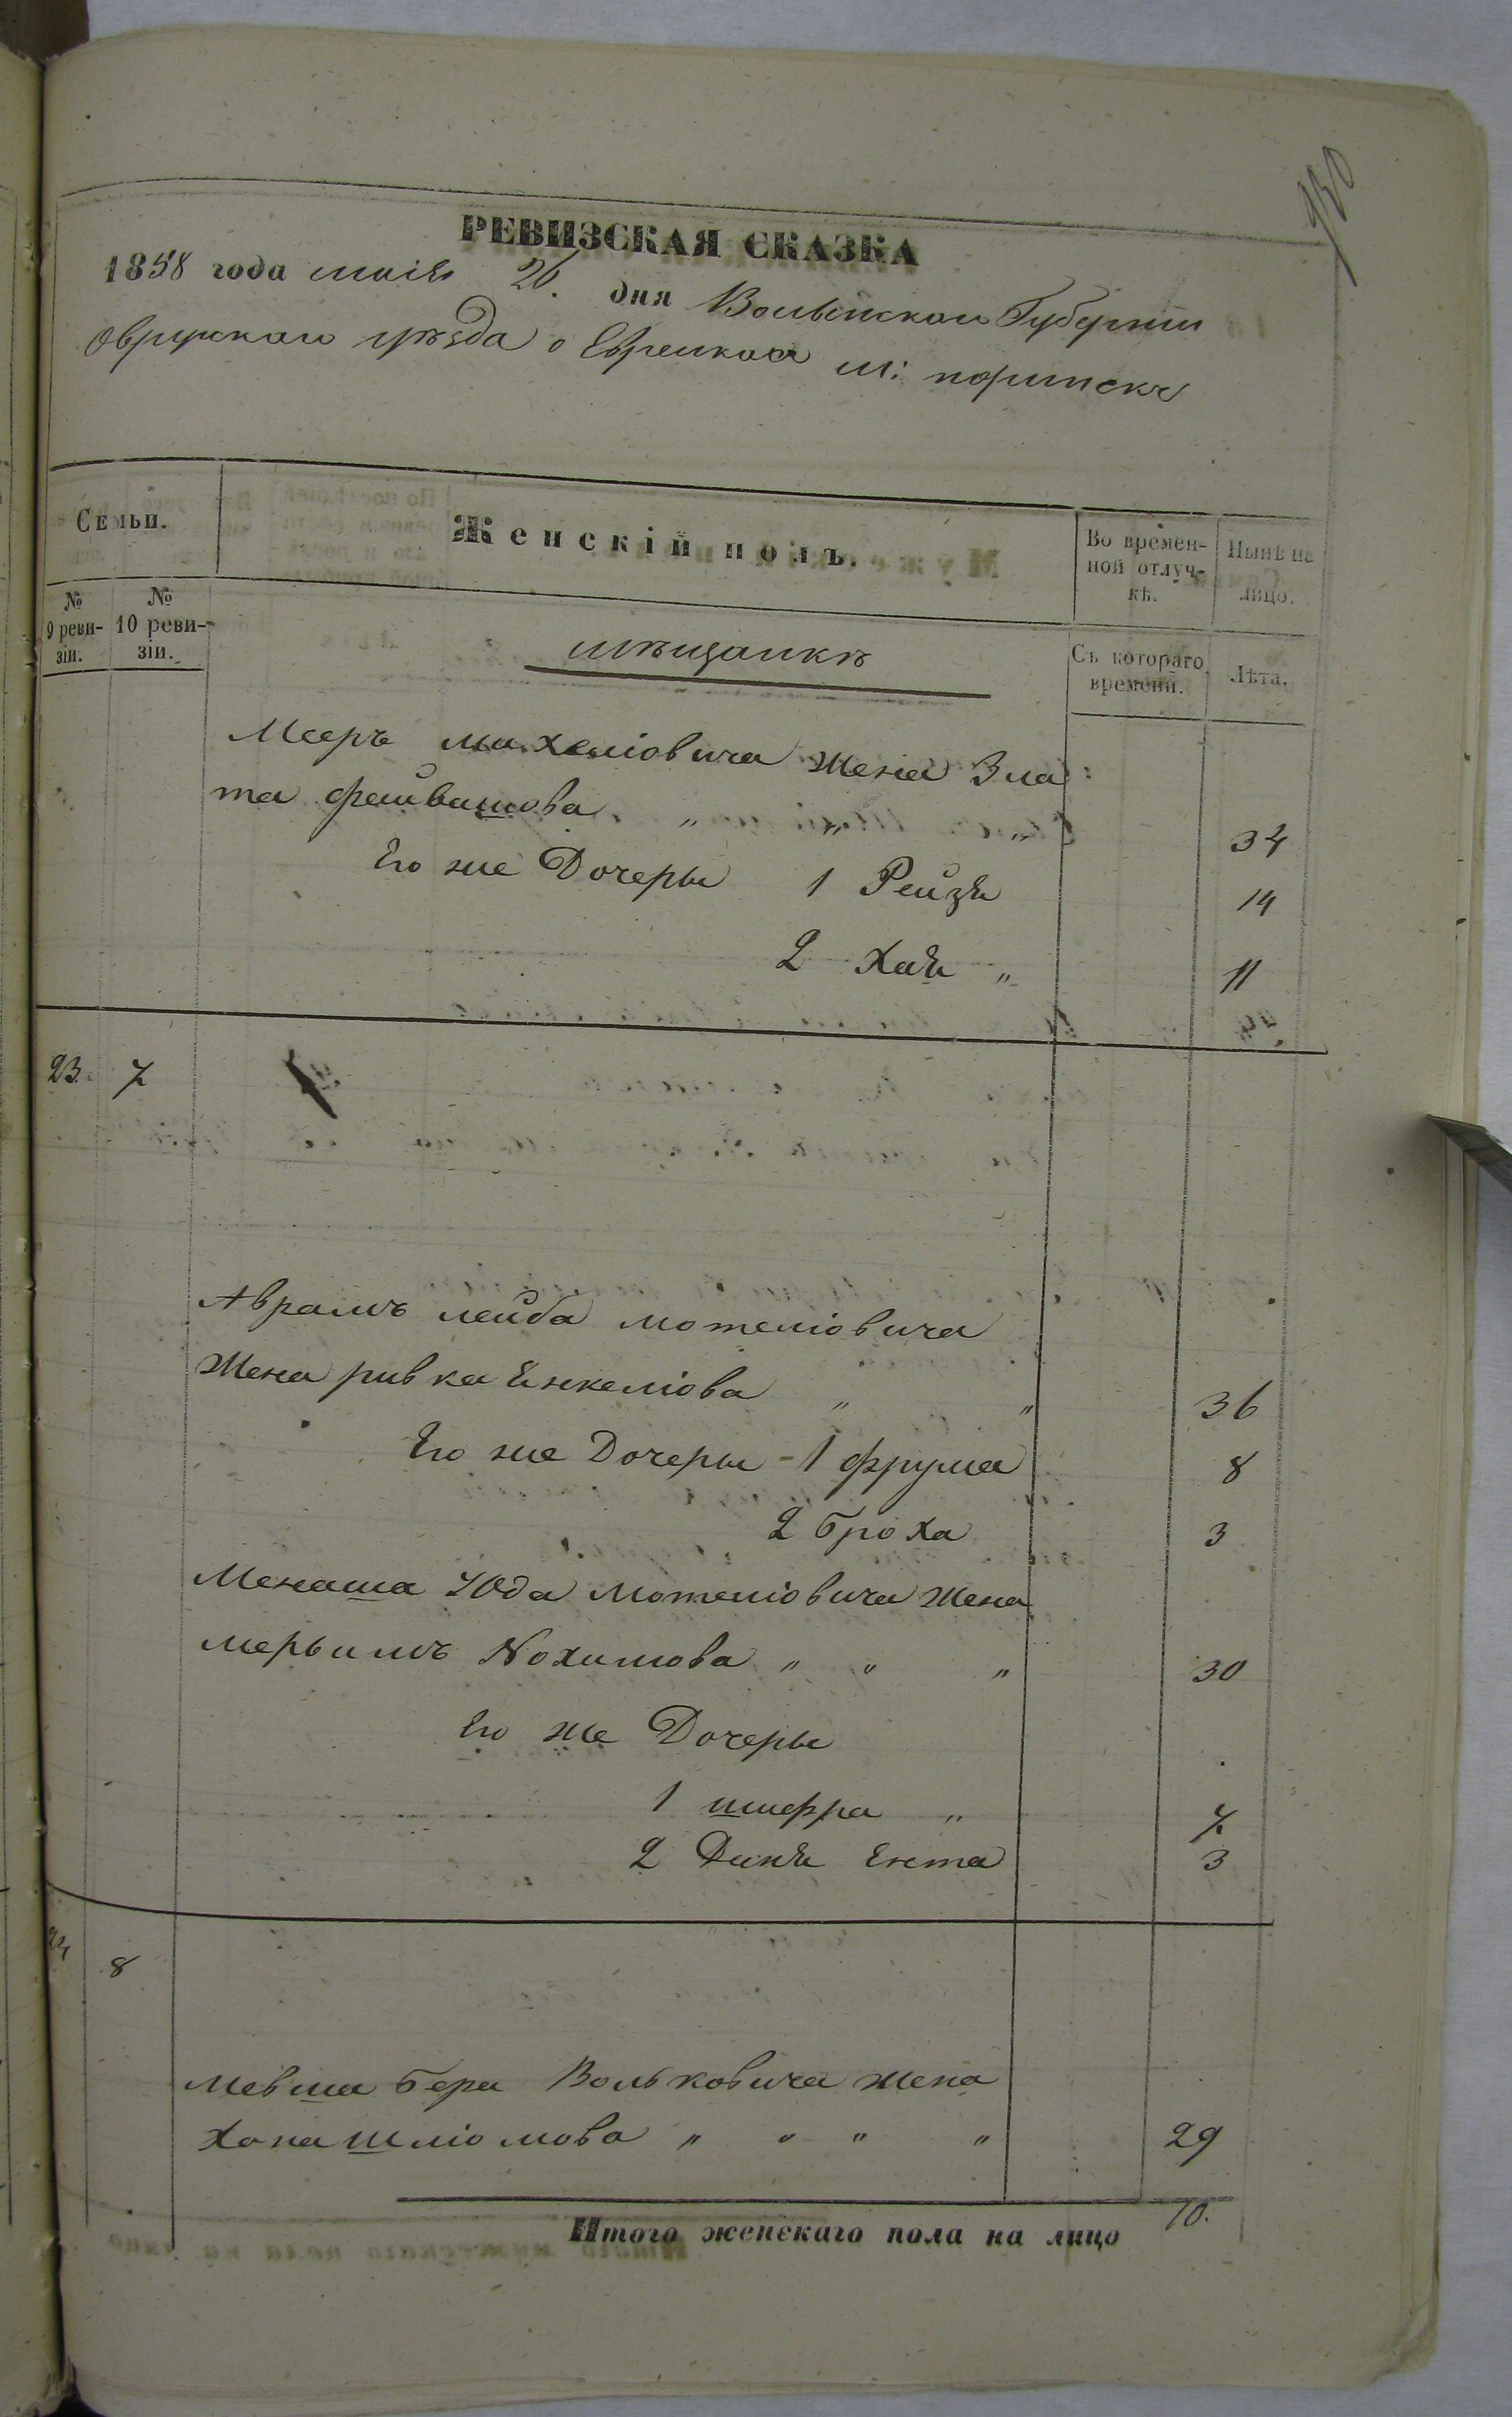 РЕВИЗСКАЯ СКАЗКА
1858 года маія 26. дня Волынскои Губернии
Овруцкаго уѣзда о Евреихъ м:
Семьи.
Женскій полъ.
Во времен-
ной отлуч-
кѣ.
Нынѣ на
лицо.
№
9 реви-
зіи.
№
10 реви-
зіи.
мѣщанкѣ
Съ котораго
времени.
Лѣта.
Мееръ Михеліовича Жена Зла
та фаивишова „ „ „ 34
Его же Дочеры 1 Рейзя 14
2 Хая „ 11
23. 7
Аврамъ лейба мотеліовича
Жена ривка Енкеліова „ „ 36
Его же Дочеры - 1 фрума 8
2 броха 3
Менаша Юда мотеліовича Жена
мерьимъ Нохимова „ „ „ 30
Его же Дочеры
1 шифра „ 7
2 Диня Ента 3
24 8
Мевша бера Вольковича жена
Хана шліомова „ „ „ „ 29
Итого женскаго пола на лицо 10.